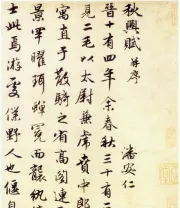 秋興賦 并序
潘安仁
晉十有四年余春秋三十有二
見二毛以太尉兼虎賁中郎
寓直于散騎之省高閣連
景罕曜珥蟬冕而襲紈
士此焉游處僕野人也偃